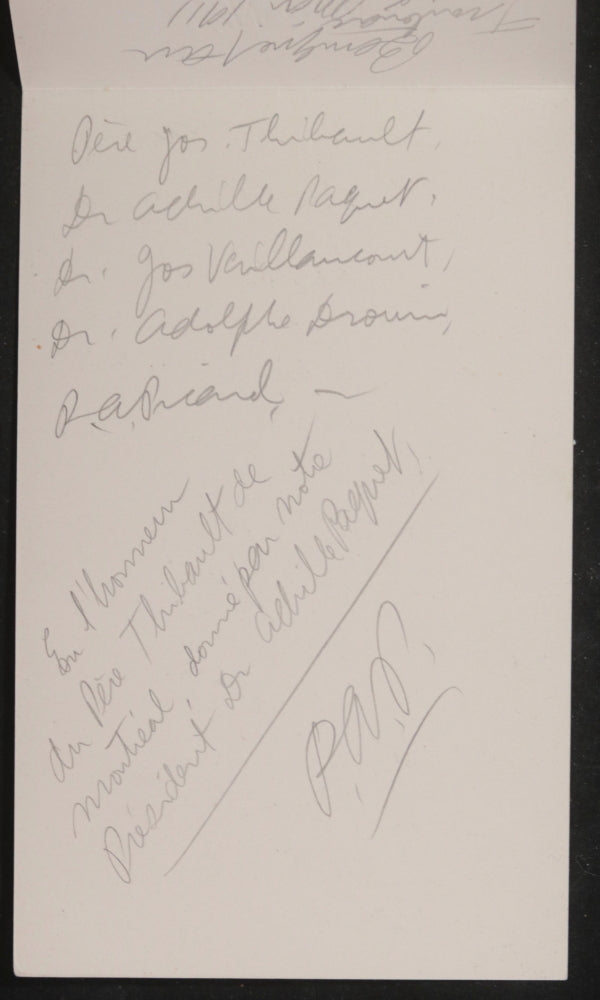 1911
Père Jos. Thibault,
Dr Achille Paquet,
Dr. Jos Vaillancourt,
Dr. Adolphe Drouin,
P.A. Picard, —
En l'honneur
du Père Thibault de
Montréal, donné par notre
Président Dr Achille Paquet,
P.A.P.